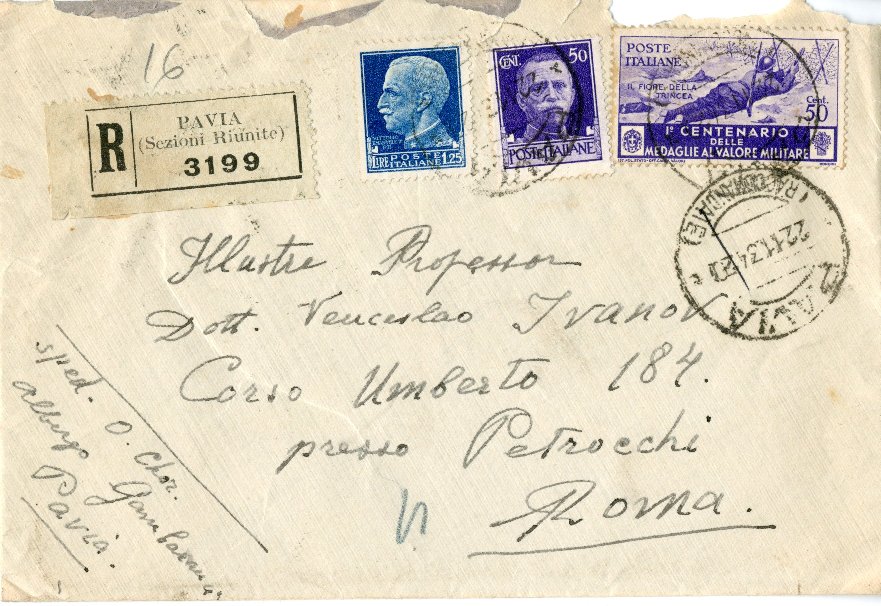 16
R
PAVIA
(Sezioni Riunite)
3199
LIRE POSTE 1,25
ITALIANE
CENT. 50
POSTE ITALIANE
POSTE
ITALIANE
IL FIORE DELLA
TRINCEA
Cent.
50
Iº CENTENARIO
DELLE
MEDAGLIE AL VALORE MILITARE
PAVIA
(RACCOMANDATE)
22.11.34
Illustre Professor
Dott. Venceslao Ivanov
Corso Umberto 184.
presso Petrocchi
Roma.
sped. O. Chor.
albergo
Pavia.